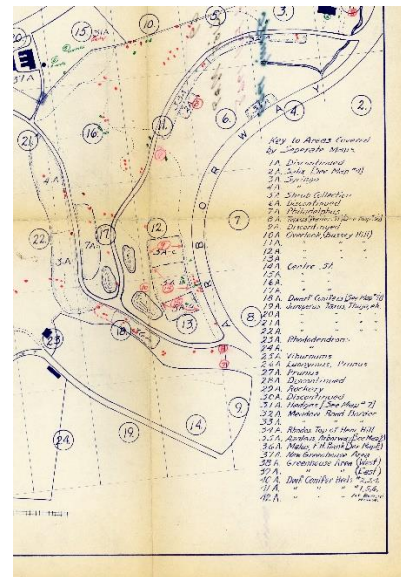 15.
31A
10.
5.
3.
20.
37A
16.
11.
6.
4.
2.
21.
ARBORWAY
Key to Areas Covered
by Seperate Maps
1A. Discontinued
2A. Salix (See Map #4)
3A. Syringa
4A. "
5A. Shrub Collection
6A. Discontinued
7A. Philadelphus
9A. Discontinued
10A. Overlook (Bussey Hill)
11A. "
12A. "
13A. "
14A. Centre St.
15A. "
16A. "
17A. "
18A. Dwarf Conifers (See Map
19A. Juniperus, Taxus, Thuja, etc.
20A. " " "
21A. " " "
22A. " " "
23A. Rhododendrons
24A. "
25A. Viburnums
26A. Euonymus, Prunus
27A. Prunus
28A. Discontinued
29A. Rockery
30A. Discontinued
31A. Hedges (See Map #7)
32A. Meadow Road Border
33A.
34A. Rhodos. Top of Hem. Hill
35A. Azaleas, Arborway (See Map
36A. Malus, P.H. Tract (See Map
37A. New Greenhouse Area
38A. Greenhouse Area (West)
39A. " " (East)
40A. Dwf. Conifer Beds
41A. " " "
42A. " " "
22.
3A
7A
17.
12.
5A-c
7.
18.
13.
8.
23.
24.
19.
14.
9.